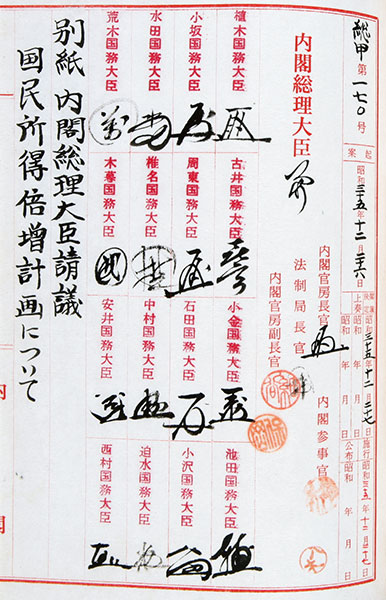 総甲第一七〇号
起案 昭和三十五年十二月二十六日
閣議決定 昭和三十五年十二月二十七日
上奏 昭和 年 月 日
昭和 年 月 日
施行 昭和三五年十二月十七日
公布 昭和 年 月 日
内閣総理大臣
内閣官房長官
法制局長官
内閣官房副長官
内閣参事官
植木国務大臣
古井国務大臣
小金国務大臣
池田国務大臣
小坂国務大臣
周東国務大臣
石田国務大臣
小沢国務大臣
水田国務大臣
椎名国務大臣
中村国務大臣
迫水国務大臣
荒木国務大臣
木暮国務大臣
安井国務大臣
西村国務大臣
別紙内閣総理大臣請議
国民所得倍増計画について
内閣